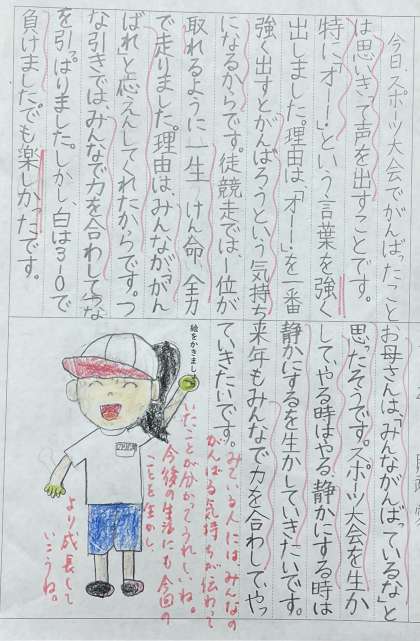 今日スポーツ大会でがんばったこと
は思いきって声を出すことです。
特に「オー!」という言葉を強く
出しました。理由は、「オー!」を一番
強く出すとがんばろうという気持ち
になるからです。徒競走では、一位が
取れるように一生けん命、全力
で走りました。理由は、みんなが「がん
ばれと応えんしてくれたからです。つ
な引きでは、みんなで力を合わしてつな
を引っぱりました。しかし、白は3-0で
負けました。でも楽しかったです。
お母さんは、「みんながんばっているな」と
思ったそうです。スポーツ大会を生か
して、やる時はやる、静かにする時は
静かにするを生かしていきたいです。
来年もみんなで力を合わして、やっ
ていきたいです。
みている人には、みんなの
がんばる気持ちが伝わって
いたことが分かってうれしいね。
今後の生活にも今回の
ことを生かし、
より成長して
いこうね。
絵をかきまし